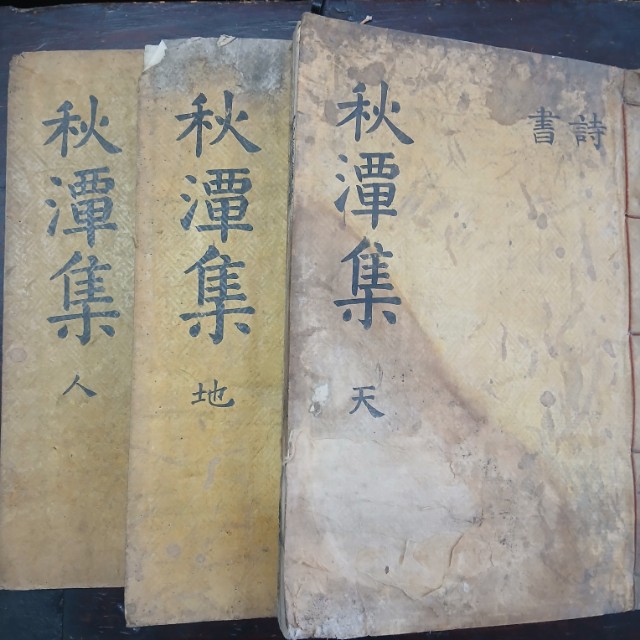 秋潭集 天
詩書
秋潭集 地
秋潭集 人